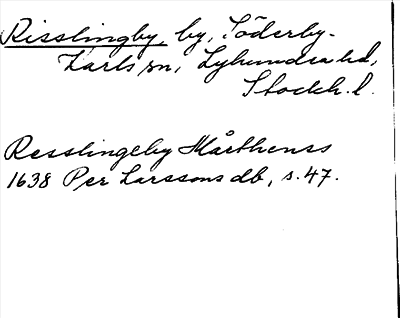 Risslingby, by, Söderby-
Karls sn, Lyhundra hd,
Stockh. l.
Resslingeby Mårthenss
1638 Per Larssons db, s. 47.